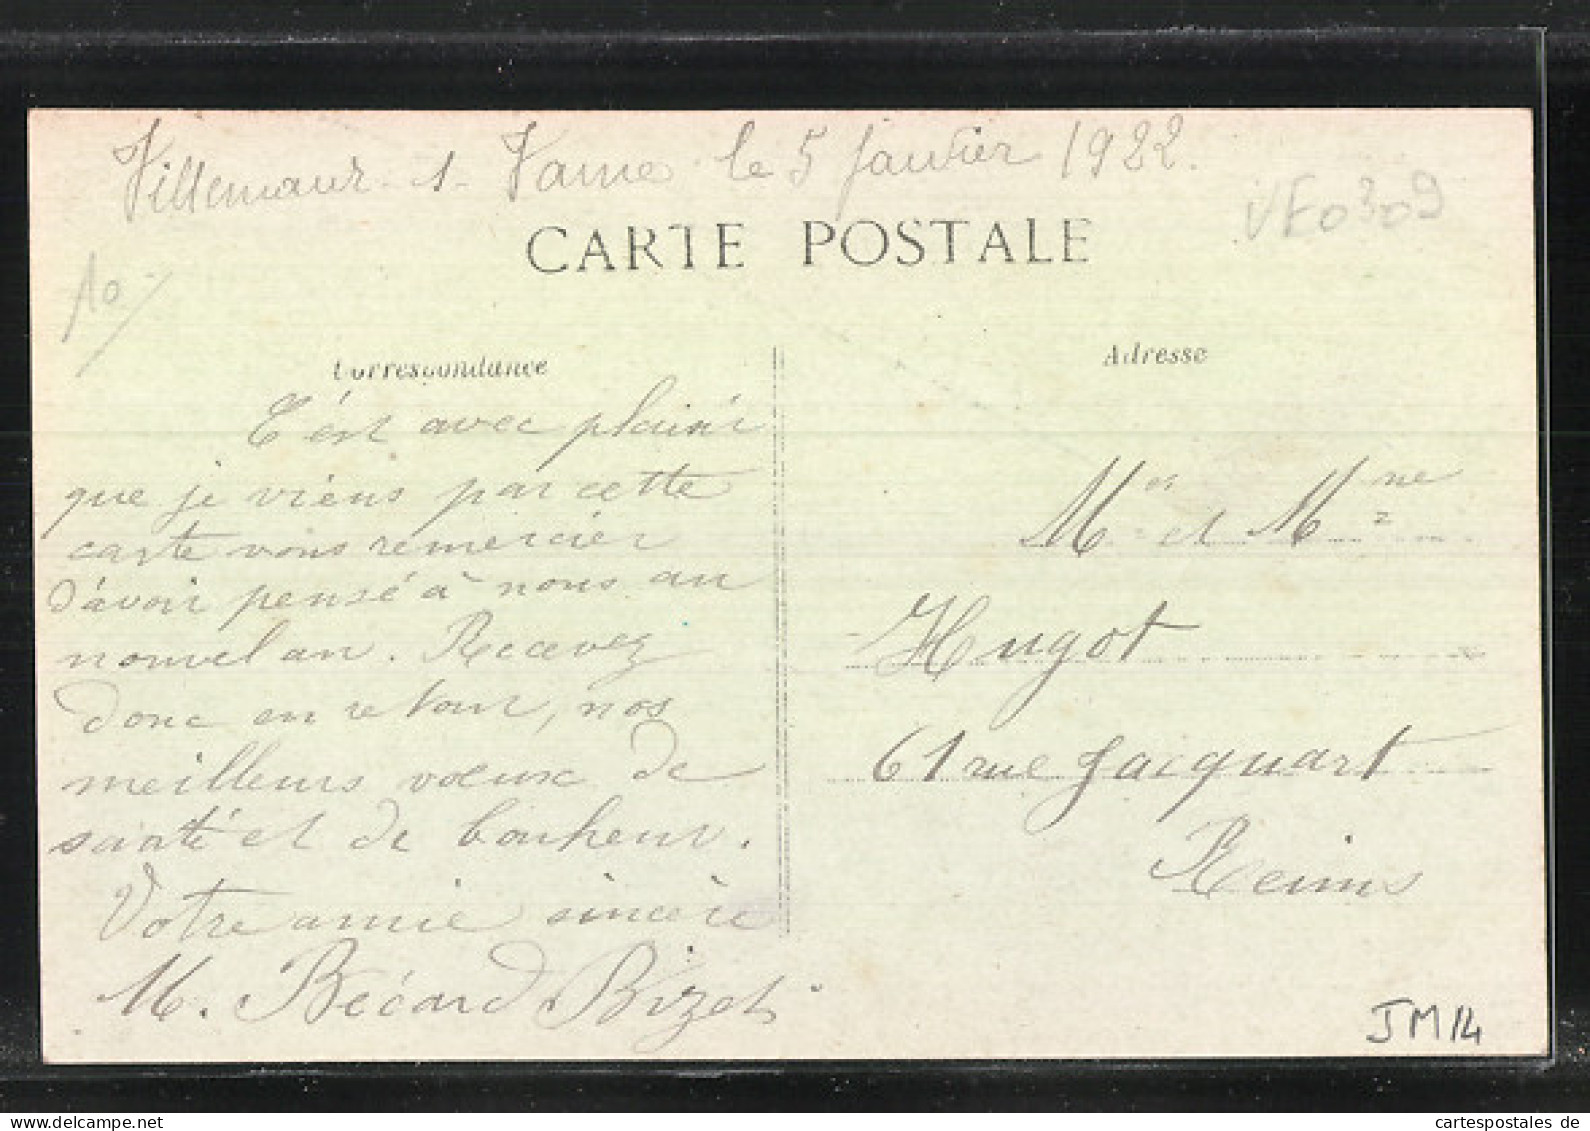 Villemaur. s. Vanne le 5 Janvier 1922.
VE0309
CARTE POSTALE
10.-/
Correspondance
C'ést avec plaisir
que je viens par cette
carte vous remercier
d'avoir pensé à nous au
nouvel an. Recevez
donc en retour, nos
meilleurs vœux de
santé et de bonheur.
Votre amie sincère
M. Bécard Bizet.
Adresse
Mr et Mme
Hugot
61 rue Jacquart
Reims
JM14
www.delcampe.net
cartespostales de
cartespostales.de